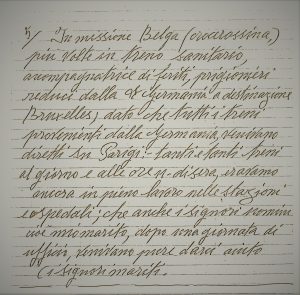 5/ "In missione Belga (crocerossina,)
più volte in treno sanitario,
accompagnatrice di feriti, prigionieri
reduci dalla Germania a destinazione
(Bruxelles) dato che tutti i treni
provenienti dalla Germania, venivano
diretti su Parigi. - tanti e tanti treni
al giorno e alle ore 11 di sera, eravamo
ancora in pieno lavoro nelle stazioni
e ospedali; che anche i signori uomini
cioè mio marito, dopo una giornata di
ufficio, venivano pure darci aiuto
(i signori mariti.